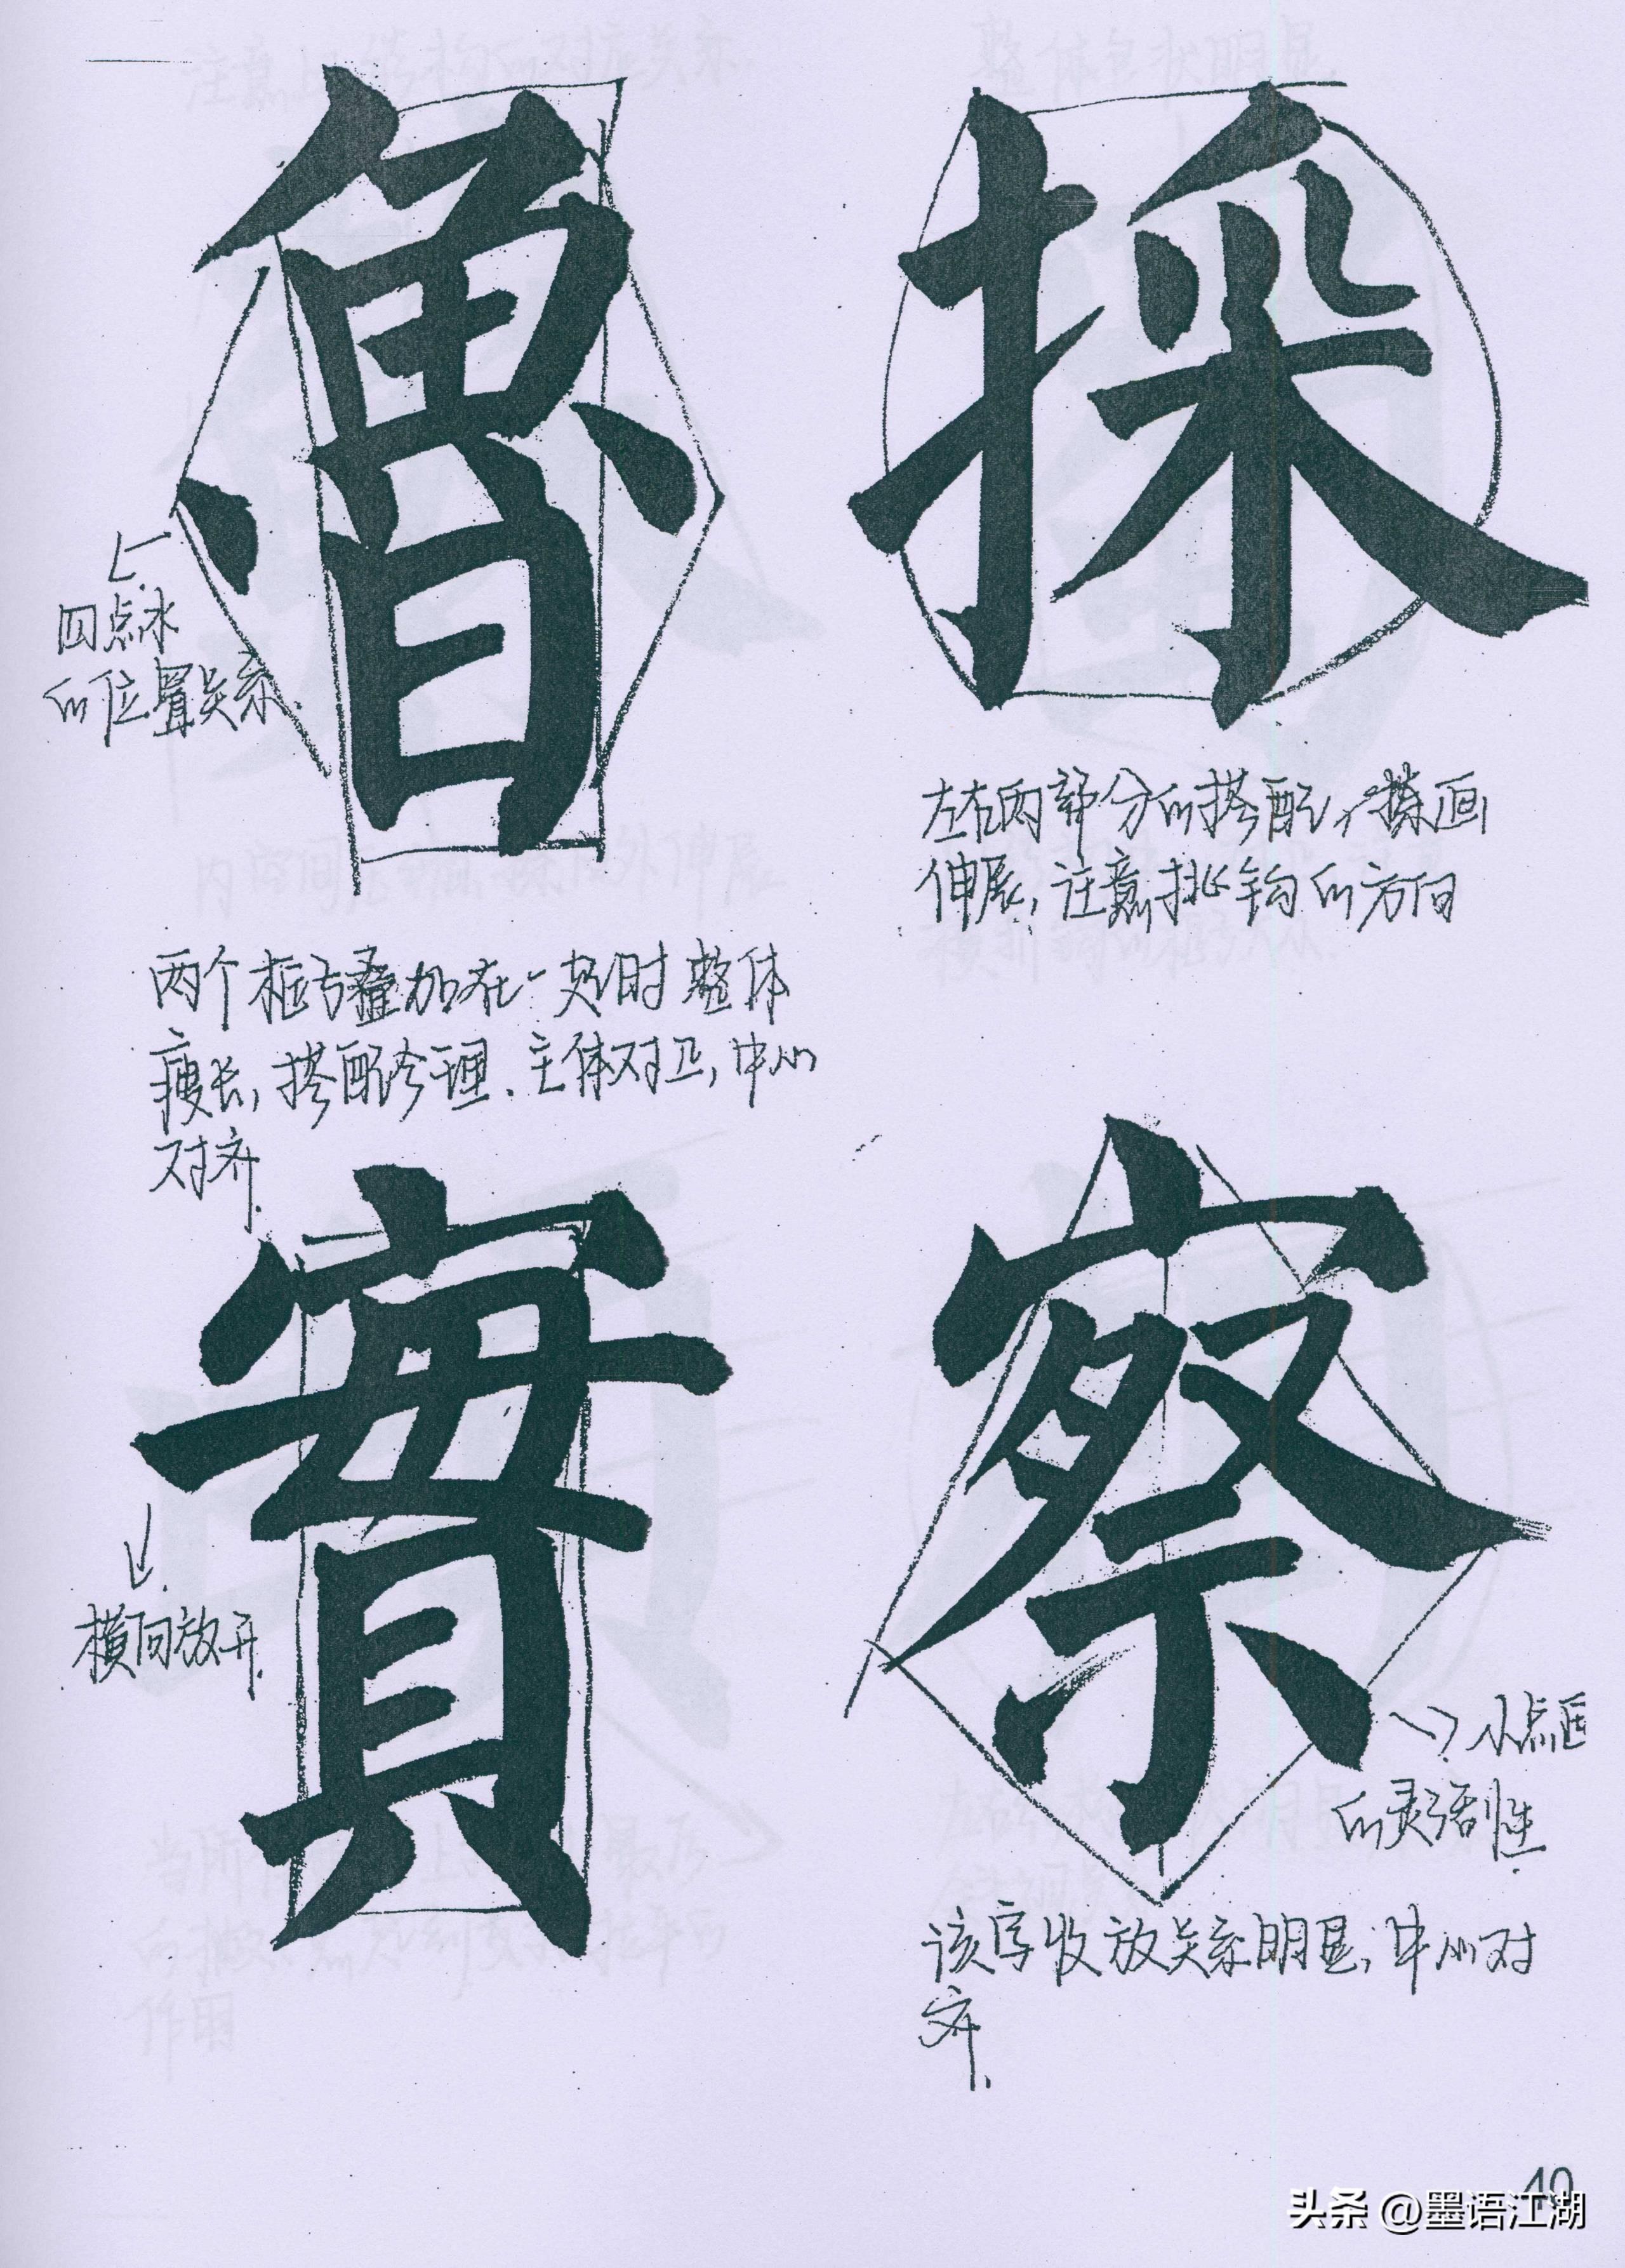 魯
四点水
的位置关系.
两个框子叠加在一起时整体
瘦长,搭配合理.主体对正,中心
对齐.
採
左右两部分的搭配,捺画
伸展,注意挑钩的方向
實
横向放开.
察
小点画
的灵活性.
该字收放关系明显,中心对
齐.
49
头条 @墨语江湖